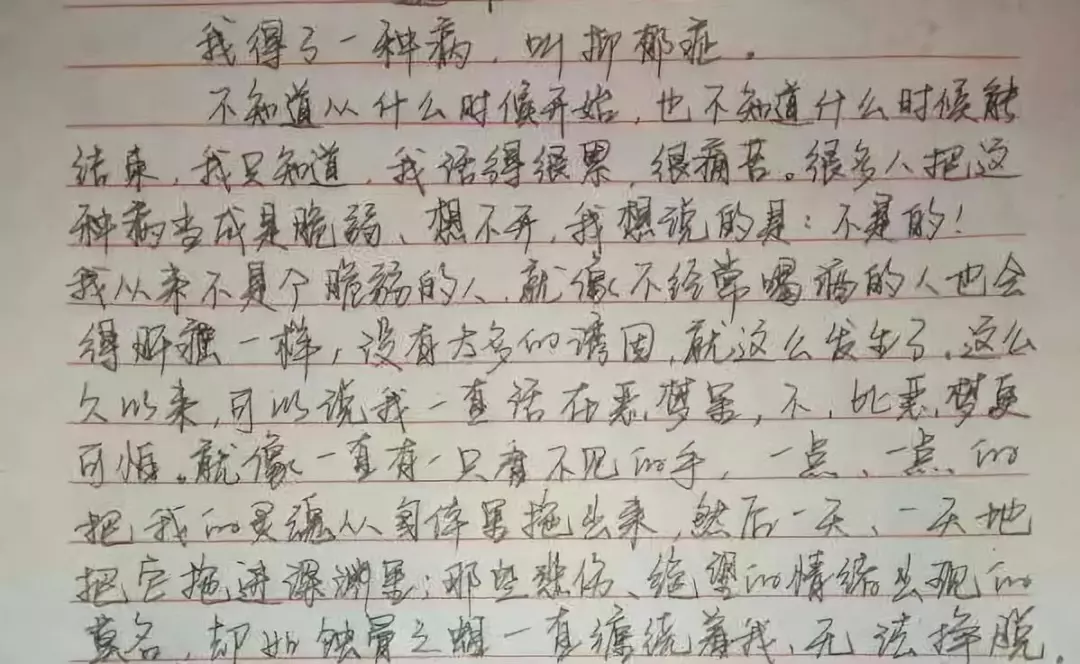 我得了一种病，叫抑郁症。
不知道从什么时候开始，也不知道什么时候能
结束，我只知道，我活得很累，很痛苦。很多人把这
种病当成是脆弱、想不开，我想说的是：不是的！
我从来不是个脆弱的人，就像不经常喝酒的人也会
得肝癌一样，没有太多的诱因，就这么发生了。这么
久以来，可以说我一直活在恶梦里，不，比恶梦更
可怕。就像一直有一只看不见的手，一点、一点的
把我的灵魂从身体里拖出来，然后一天、一天地
把它拖进深渊里；那些悲伤、绝望的情绪出现的
莫名，却如蚀骨之蛆一直缠绕着我，无法挣脱。